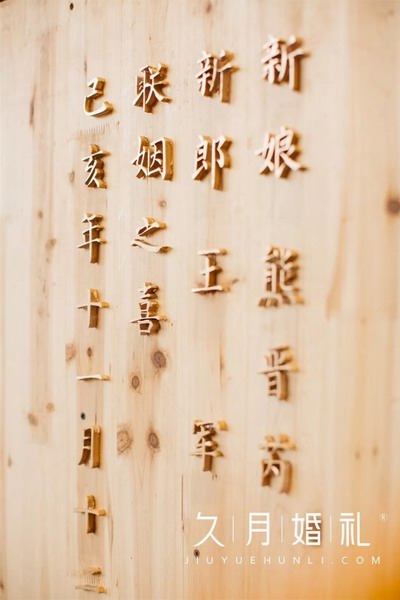 新娘 熊晋芮
新郎 王 军
联姻之喜
己亥年十一月十二
久|月|婚|礼®
JIUYUEHUNLI.COM